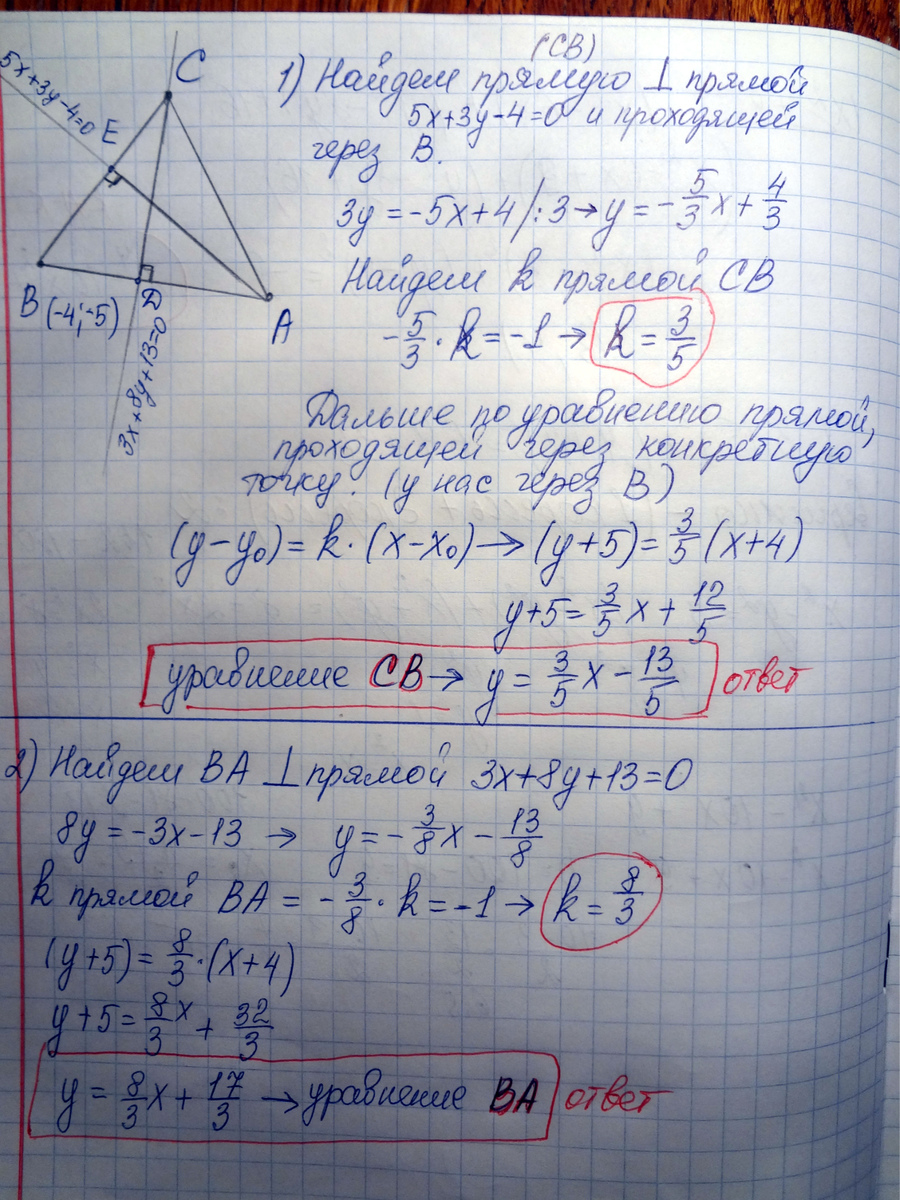 5x+3y-4=0
C
E
B (-4;-5)
D
A
3x+8y+13=0
(CB)
1) Найдем прямую ⊥ прямой
5x+3y-4=0 и проходящей
через B.
3y=-5x+4/:3→y=-5/3x+4/3
Найдем k прямой CB
-5/3·k=-1→k=3/5
Дальше по уравнению прямой,
проходящей через конкретную
точку. (у нас через B)
(y-y₀)=k·(x-x₀)→(y+5)=3/5(x+4)
y+5=3/5x+12/5
уравнение CB→ y=3/5x-13/5 ответ
2) Найдем BA ⊥ прямой 3x+8y+13=0
8y=-3x-13 → y=-3/8x-13/8
k прямой BA = -3/8·k=-1→k=8/3
(y+5)=8/3·(x+4)
y+5=8/3x+32/3
y=8/3x+17/3 →уравнение BA ответ